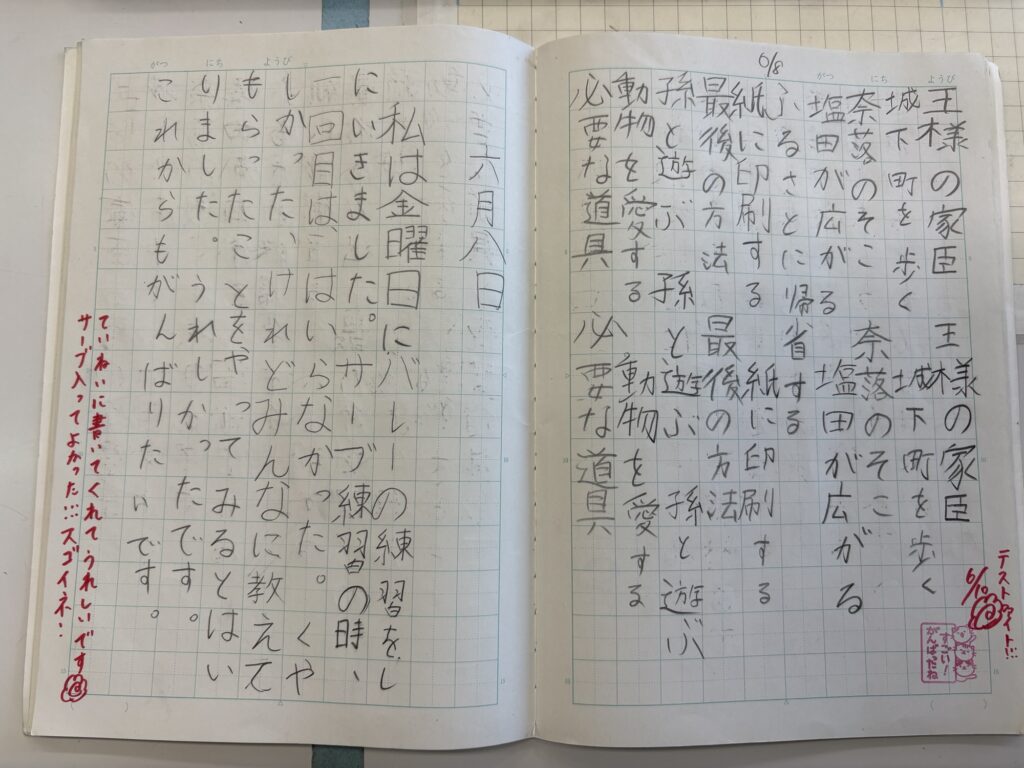 6/8
がつ にち ようび
王様の家臣 王様の家臣
城下町を歩く 城下町を歩く
奈落のそこ 奈落のそこ
塩田が広がる 塩田が広がる
ふるさとに帰省する
紙に印刷する 紙に印刷する
最後の方法 最後の方法
孫と遊ぶ 孫と遊ぶ 孫と遊ぶ
動物を愛する 動物を愛する
必要な道具 必要な道具
テストファイト!!!
6/10
すごい!
がんばったね
がつ にち ようび
六月八日
私は金曜日にバレーの練習をし
にいきました。サーブ練習の時、
一回目は、はいらなかった。くや
しかった、けれどみんなに教えて
もらったことをやってみるとはい
りました。うれしかったです。
これからもがんばりたいです。
ていねいに書いてくれてうれしいです
サーブ入ってよかった!!!スゴイネ!!